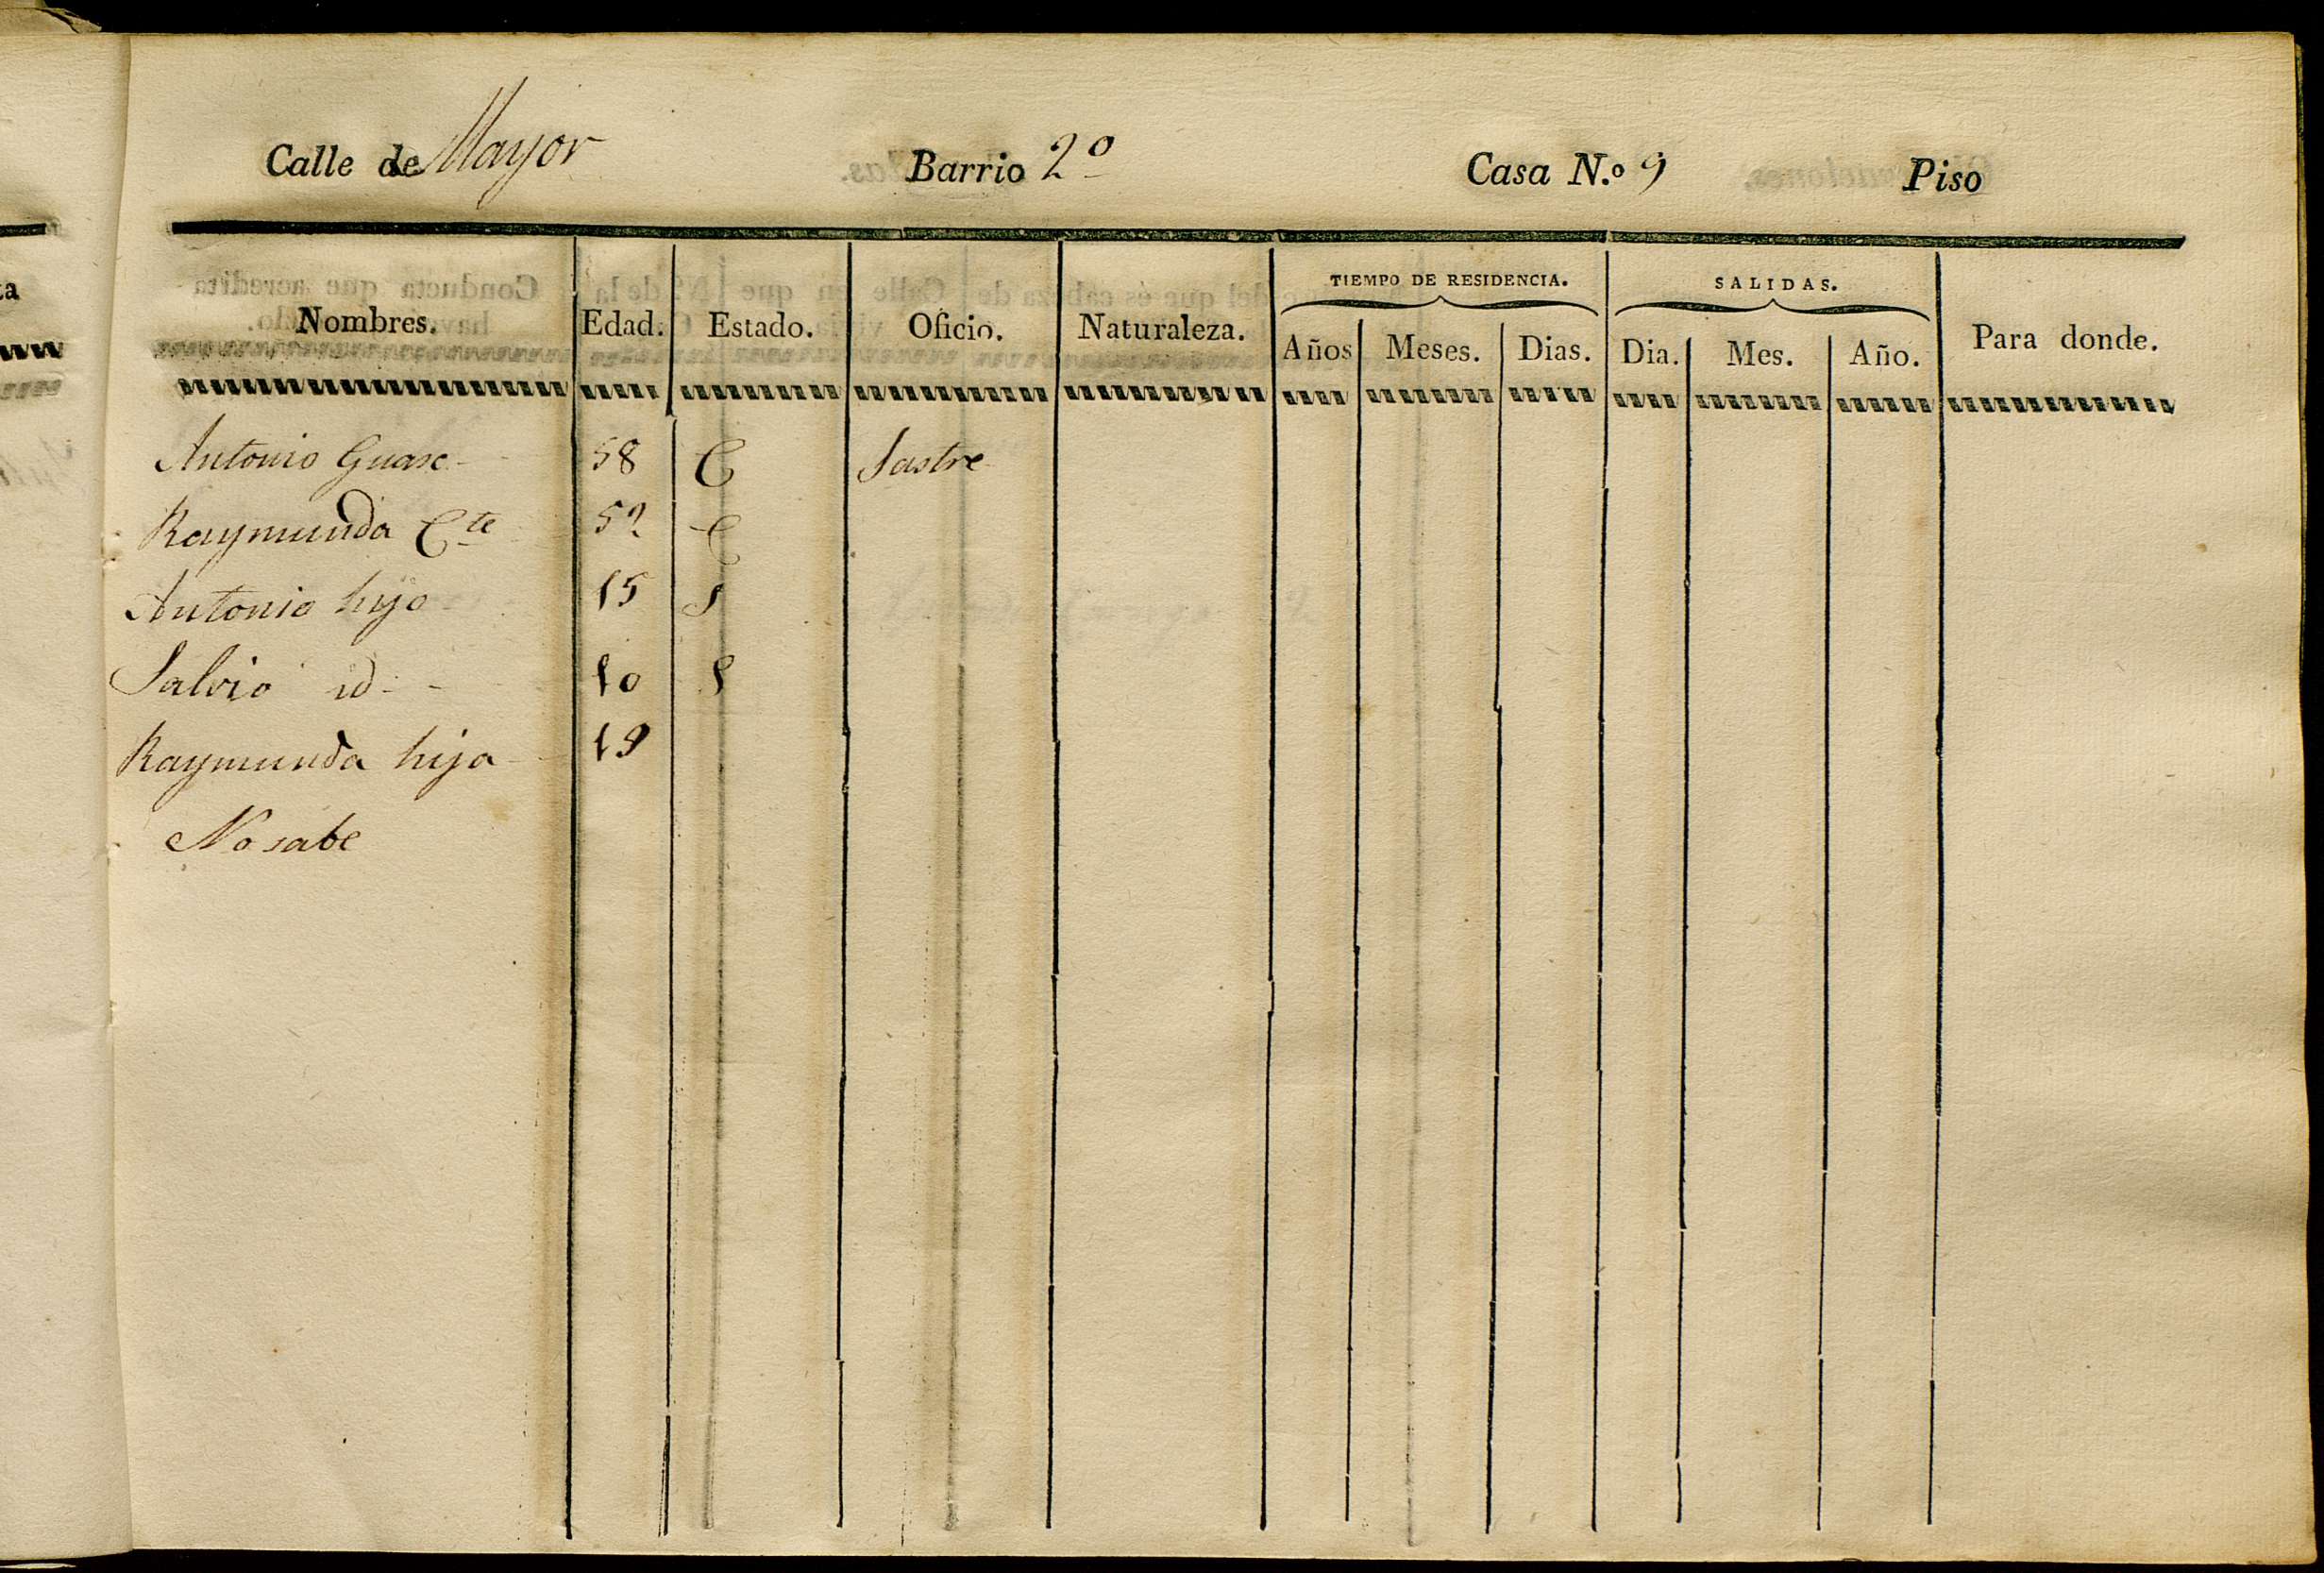 Calle de Mayor Barrio 2º Casa N.º 9 Piso
TIEMPO DE RESIDENCIA. SALIDAS.
Nombres. Edad. Estado. Oficio. Naturaleza. Años Meses. Dias. Dia. Mes. Año. Para donde.
Antonio Guasc 58 C Sastre
Raymunda Cte 52 C
Antonio hijo 15 S
Salvio id 10 S
Raymunda hija 19
No sabe